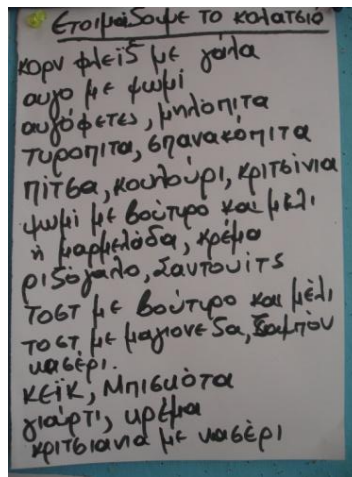 Ετοιμάζουμε το κολατσιό
κορν φλέιξ με γάλα
αυγό με ψωμί
αυγόφετες, μηλόπιτα
τυροπιτα, σπανακόπιτα
πίτσα, κουλούρι, κριτσίνια
ψωμί με βούτυρο και μέλι
ή μαρμελάδα, κρέμα
ριζόγαλο, Σάντουιτς
τοστ με βούτυρο και μέλι
τοστ με μαγιονέζα, ζαμπόν
κασέρι.
κέικ, Μπισκότα
γιάρτι, κρέμα
κριτσιανια με κασέρι